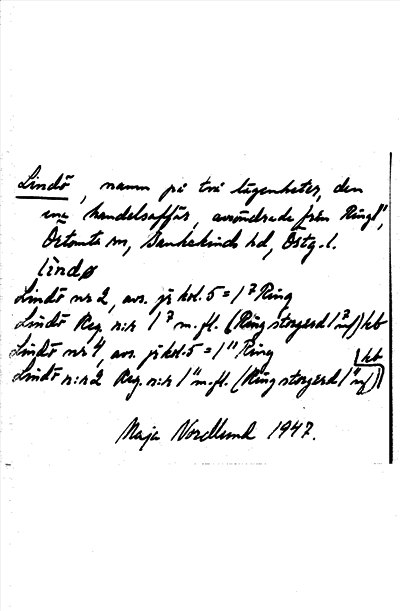 Lindö, namn på två lägenheter, den
ena handelsaffär, avsöndrade från Ringl",
Örtomta sn, Bankekinds hd, Östg. l.
lìndø
Lindö nr 2, avs. jr kol. 5 = 1⁷ Ring
Lindö Reg. n:r 1⁷ m.fl. (Ringstorgerd 1⁷ mf) hb
Lindö nr 4, avs. jr kol. 5 = 1" Ring
Lindö n:r 2 Reg. n:r 1" m.fl. (Ringstorgerd 1" mf) hb
Maja Nordlund 1947.